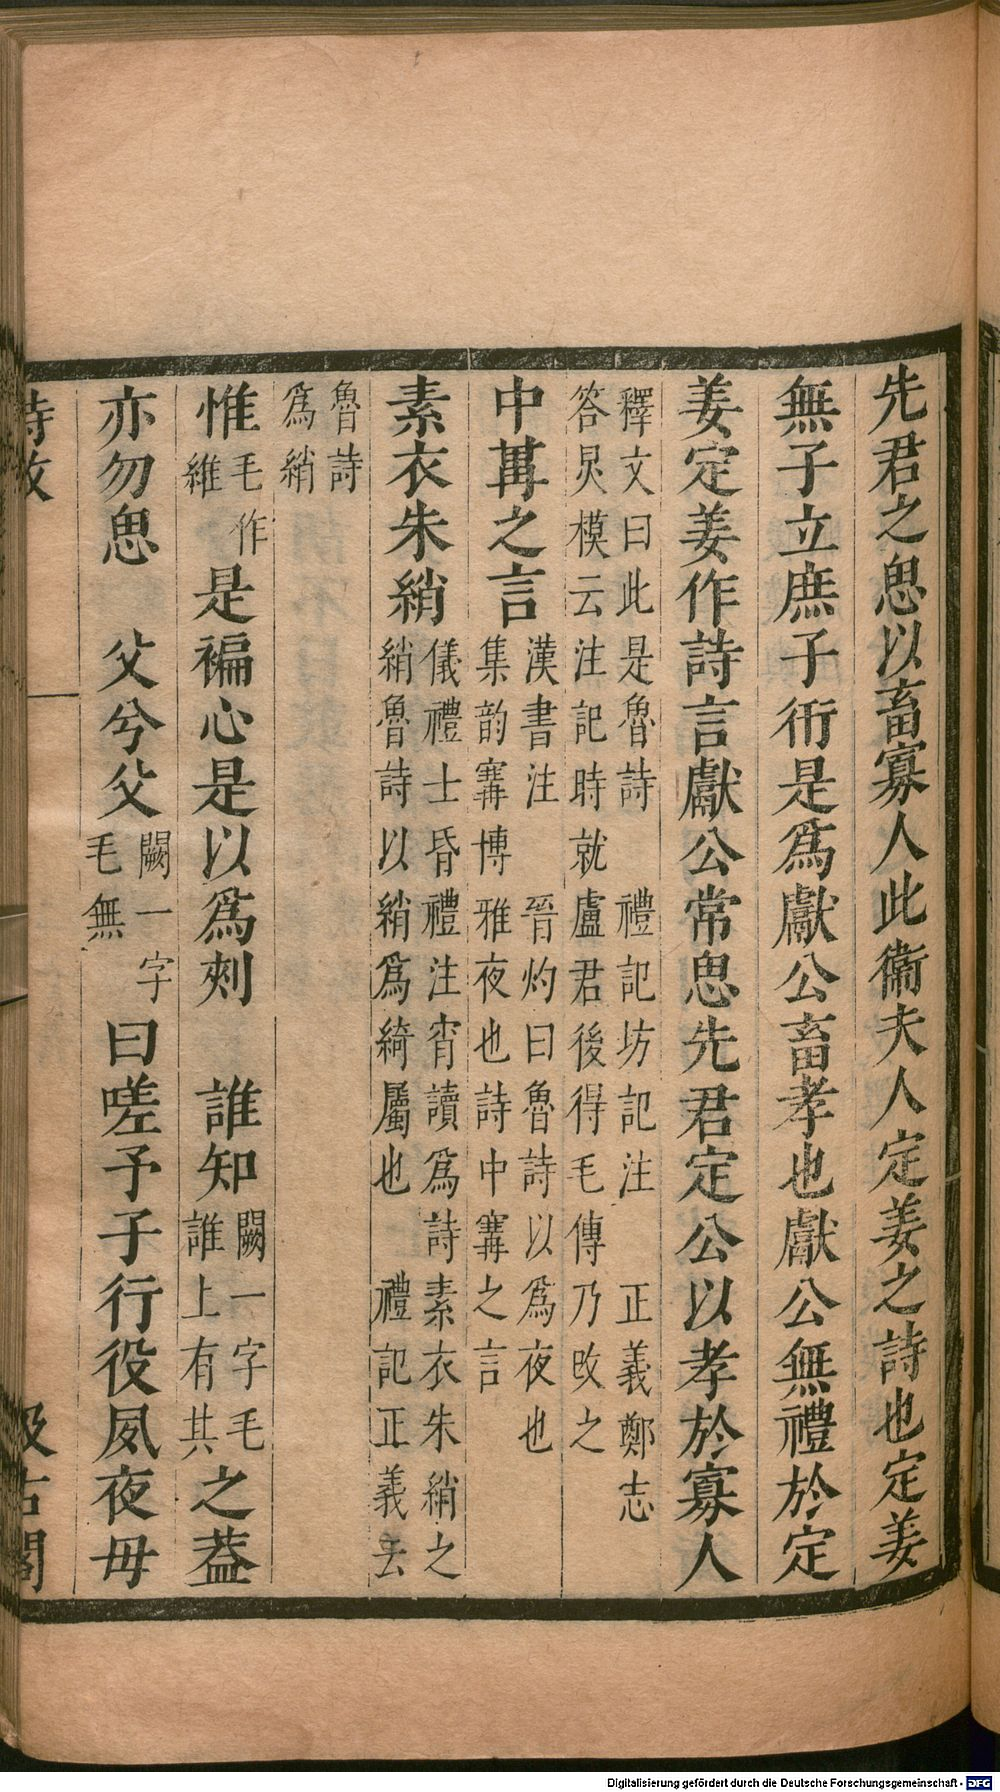 先君之思以畜寡人此衞夫人定姜之詩也定姜
無子立庶子衎是爲獻公畜孝也獻公無禮於定
姜定姜作詩言獻公常思先君定公以孝於寡人
釋文曰此是魯詩　禮記坊記注　正義鄭志
答炅模云注記時就盧君後得毛傳乃改之
中冓之言漢書注　晉灼曰魯詩以爲夜也
集韵㝤博雅夜也詩中㝤之言
素衣朱綃儀禮士昏禮注宵讀爲詩素衣朱綃之
綃魯詩以綃爲綺屬也　禮記正義云
魯詩
爲綃
惟毛作維是褊心是以爲刺　誰知闕一字毛誰上有其之葢
亦勿思　父兮父闕一字毛無　曰嗟予子行役夙夜毋
詩攷
汲古閣
Digitalisierung gefördert durch die Deutsche Forschungsgemeinschaft - DFG